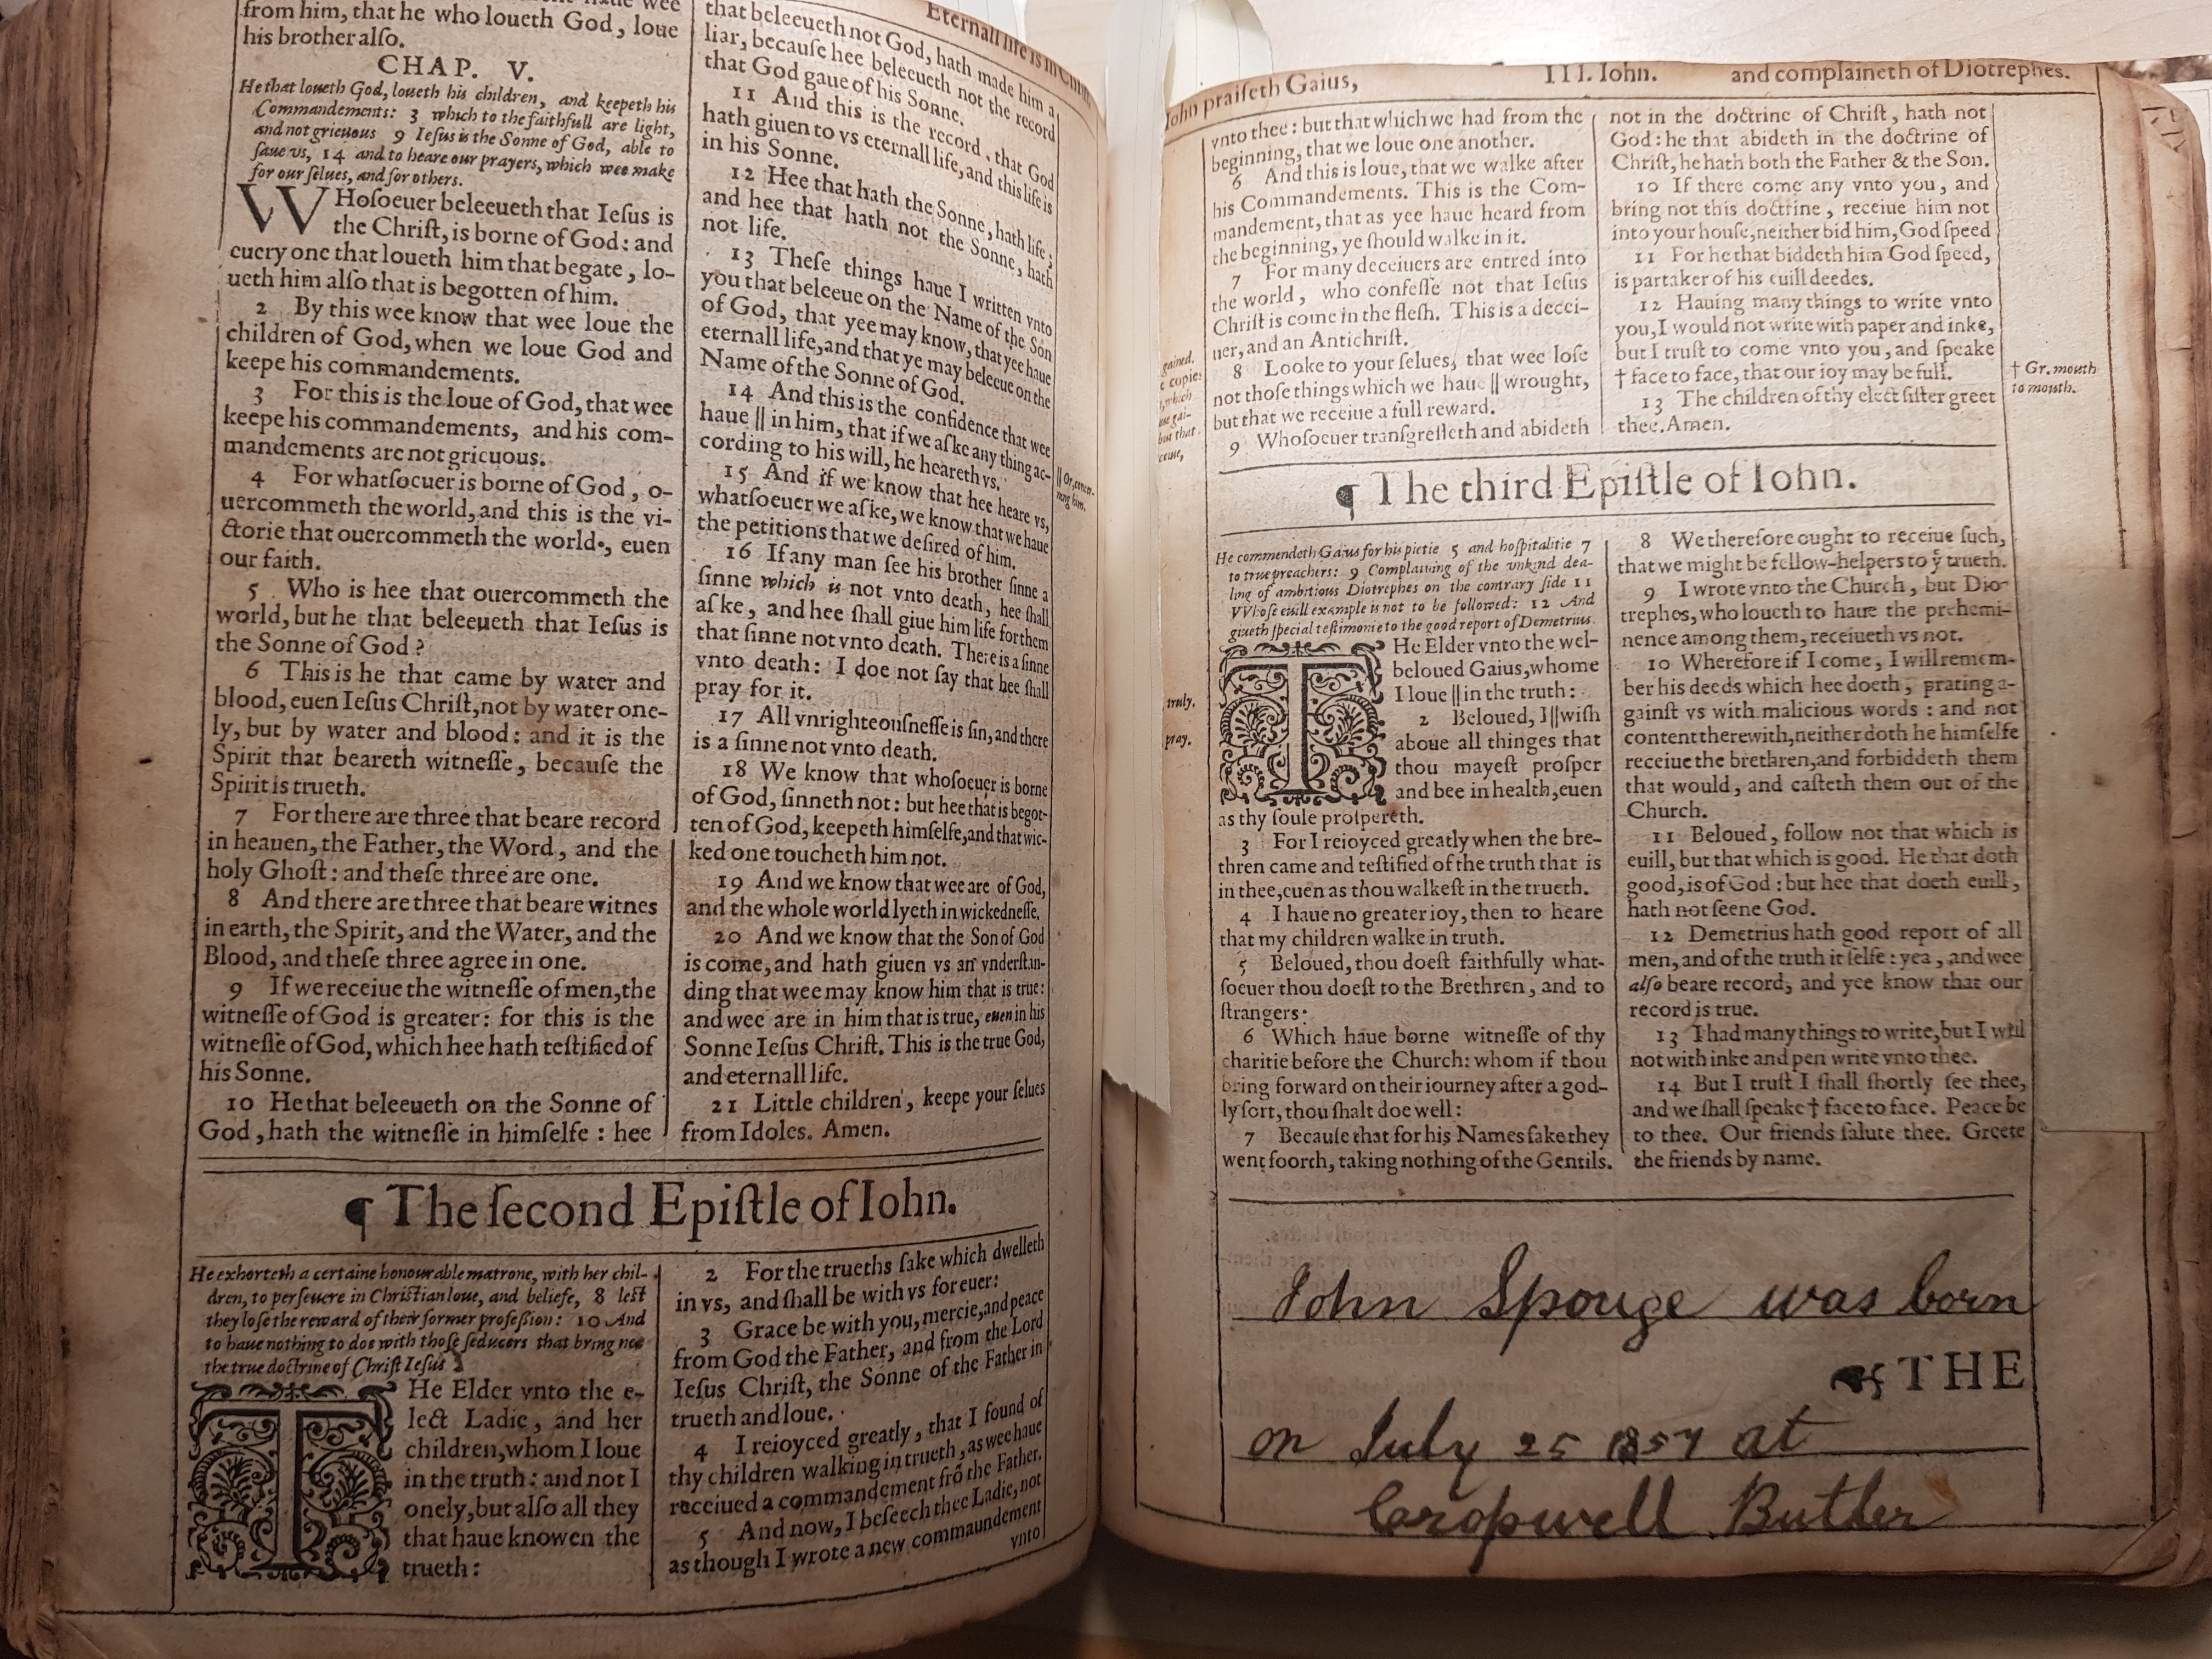 from him, that he who loueth God, loue
his brother alſo.
CHAP. V.
He that loueth God, loueth his children, and keepeth his
Commandements: 3 which to the faithfull are light,
and not grieuous 9 Ieſus is the Sonne of God, able to
ſaue vs, 14 and to heare our prayers, which wee make
for our ſelues, and for others.
WHoſoeuer beleeueth that Ieſus is
the Chriſt, is borne of God: and
euery one that loueth him that begate, lo-
ueth him alſo that is begotten of him.
2 By this wee know that wee loue the
children of God, when we loue God and
keepe his commandements.
3 For this is the loue of God, that wee
keepe his commandements, and his com-
mandements are not grieuous.
4 For whatſoeuer is borne of God, o-
uercommeth the world, and this is the vi-
ctorie that ouercommeth the world, euen
our faith.
5 Who is hee that ouercommeth the
world, but he that beleeueth that Ieſus is
the Sonne of God?
6 This is he that came by water and
blood, euen Ieſus Chriſt, not by water one-
ly, but by water and blood: and it is the
Spirit that beareth witneſſe, becauſe the
Spirit is trueth.
7 For there are three that beare record
in heauen, the Father, the Word, and the
holy Ghoſt: and theſe three are one.
8 And there are three that beare witnes
in earth, the Spirit, and the Water, and the
Blood, and theſe three agree in one.
9 If we receiue the witneſſe of men, the
witneſſe of God is greater: for this is the
witneſſe of God, which hee hath teſtified of
his Sonne.
10 He that beleeueth on the Sonne of
God, hath the witneſſe in himſelfe: hee
Eternall life is in
that beleeueth not God, hath made him a
liar, becauſe hee beleeueth not the record
that God gaue of his Sonne.
11 And this is the record, that God
hath giuen to vs eternall life, and this life is
in his Sonne.
12 Hee that hath the Sonne, hath life;
and hee that hath not the Sonne, hath
not life.
13 Theſe things haue I written vnto
you that beleeue on the Name of the Son
of God, that yee may know, that yee haue
eternall life, and that ye may beleeue on the
Name of the Sonne of God.
14 And this is the confidence that wee
haue || in him, that if we aſke any thing ac-
cording to his will, he heareth vs.
15 And if we know that hee heare vs,
whatſoeuer we aſke, we know that we haue
the petitions that we deſired of him.
16 If any man ſee his brother ſinne a
ſinne which is not vnto death, hee ſhall
aſke, and hee ſhall giue him life for them
that ſinne not vnto death. There is a ſinne
vnto death: I doe not ſay that hee ſhall
pray for it.
17 All vnrighteouſneſſe is ſin, and there
is a ſinne not vnto death.
18 We know that whoſoeuer is borne
of God, ſinneth not: but hee that is begot-
ten of God, keepeth himſelfe, and that wic-
ked one toucheth him not.
19 And we know that wee are of God,
and the whole world lyeth in wickedneſſe.
20 And we know that the Son of God
is come, and hath giuen vs an vnderſtan-
ding that wee may know him that is true:
and wee are in him that is true, euen in his
Sonne Ieſus Chriſt. This is the true God,
and eternall life.
21 Little children, keepe your ſelues
from Idoles. Amen.
|| Or, concer-
ning him.
¶ The ſecond Epiſtle of Iohn.
He exhorteth a certaine honourable matrone, with her chil-
dren, to perſeuere in Chriſtian loue, and beliefe, 8 leſt
they loſe the reward of their former profeſſion: 10 And
to haue nothing to doe with thoſe ſeducers that bring not
the true doctrine of Chriſt Ieſus
THe Elder vnto the e-
lect Ladie, and her
children, whom I loue
in the truth: and not I
onely, but alſo all they
that haue knowen the
trueth:
2 For the trueths ſake which dwelleth
in vs, and ſhall be with vs for euer:
3 Grace be with you, mercie, and peace
from God the Father, and from the Lord
Ieſus Chriſt, the Sonne of the Father in
trueth and loue.
4 I reioyced greatly, that I found of
thy children walking in trueth, as wee haue
receiued a commandement frō the Father.
5 And now, I beſeech thee Ladie, not
as though I wrote a new commaundement
vnto
Iohn praiſeth Gaius, III. Iohn. and complaineth of Diotrephes.
vnto thee: but that which we had from the
beginning, that we loue one another.
6 And this is loue, that we walke after
his Commandements. This is the Com-
mandement, that as yee haue heard from
the beginning, ye ſhould walke in it.
7 For many deceiuers are entred into
the world, who confeſſe not that Ieſus
Chriſt is come in the fleſh. This is a decei-
uer, and an Antichriſt.
8 Looke to your ſelues, that wee loſe
not thoſe things which we haue || wrought,
but that we receiue a full reward.
9 Whoſoeuer tranſgreſſeth and abideth
gained.
copies
which
but that
not in the doctrine of Chriſt, hath not
God: he that abideth in the doctrine of
Chriſt, he hath both the Father & the Son.
10 If there come any vnto you, and
bring not this doctrine, receiue him not
into your houſe, neither bid him, God ſpeed
11 For he that biddeth him God ſpeed,
is partaker of his euill deedes.
12 Hauing many things to write vnto
you, I would not write with paper and inke,
but I truſt to come vnto you, and ſpeake
† face to face, that our ioy may be full.
13 The children of thy elect ſiſter greet
thee. Amen.
† Gr. mouth
to mouth.
¶ The third Epiſtle of Iohn.
He commendeth Gaius for his pietie 5 and hoſpitalitie 7
to true preachers: 9 Complaining of the vnkind dea-
ling of ambitious Diotrephes on the contrary ſide 11
VVhoſe euill example is not to be followed: 12 And
giueth ſpecial teſtimonie to the good report of Demetrius.
THe Elder vnto the wel-
beloued Gaius, whome
I loue || in the truth:
2 Beloued, I || wiſh
aboue all thinges that
thou mayeſt proſper
and bee in health, euen
as thy ſoule proſpereth.
3 For I reioyced greatly when the bre-
thren came and teſtified of the truth that is
in thee, euen as thou walkeſt in the trueth.
4 I haue no greater ioy, then to heare
that my children walke in truth.
5 Beloued, thou doeſt faithfully what-
ſoeuer thou doeſt to the Brethren, and to
ſtrangers:
6 Which haue borne witneſſe of thy
charitie before the Church: whom if thou
bring forward on their iourney after a god-
ly ſort, thou ſhalt doe well:
7 Becauſe that for his Names ſake they
went foorth, taking nothing of the Gentils.
truly.
pray.
8 We therefore ought to receiue ſuch,
that we might be fellow-helpers to yͤ trueth.
9 I wrote vnto the Church, but Dio-
trephes, who loueth to haue the prehemi-
nence among them, receiueth vs not.
10 Wherefore if I come, I will remem-
ber his deeds which hee doeth, prating a-
gainſt vs with malicious words: and not
content therewith, neither doth he himſelfe
receiue the brethren, and forbiddeth them
that would, and caſteth them out of the
Church.
11 Beloued, follow not that which is
euill, but that which is good. He that doth
good, is of God: but hee that doeth euill,
hath not ſeene God.
12 Demetrius hath good report of all
men, and of the truth it ſelfe: yea, and wee
alſo beare record, and yee know that our
record is true.
13 I had many things to write, but I will
not with inke and pen write vnto thee.
14 But I truſt I ſhall ſhortly ſee thee,
and we ſhall ſpeake † face to face. Peace be
to thee. Our friends ſalute thee. Greete
the friends by name.
John Spouge was born
THE
on July 25 1857 at
Cropwell Butler